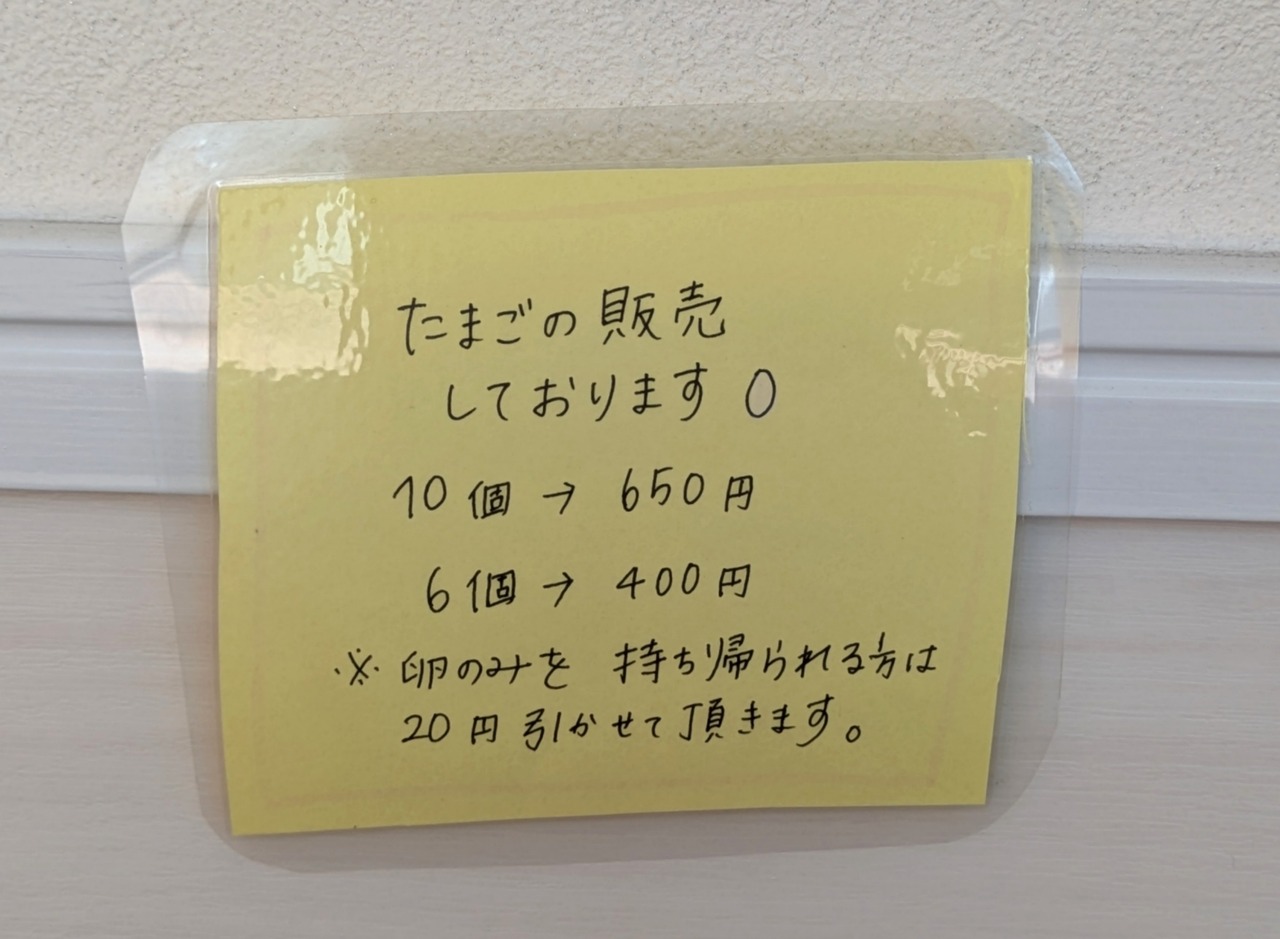 たまごの販売
しております
10個→650円
6個→400円
※卵のみを 持ち帰られる方は
20円引かせて頂きます。